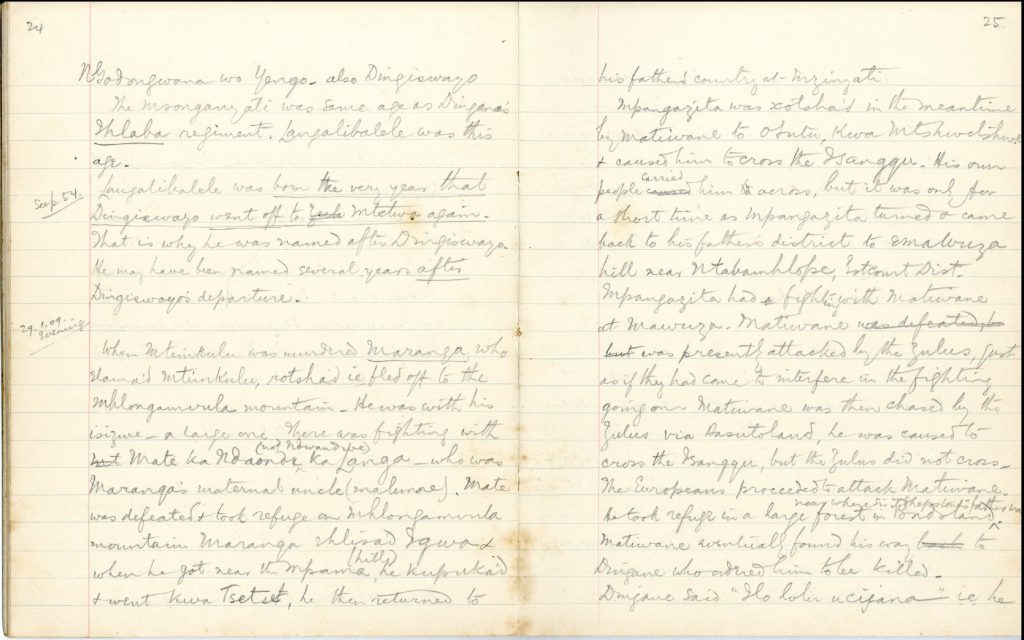 24
NGodongwana wo Yengo - also Dingiswayo
The Msonganyati was same age as Dingana's
Ihlaba regiment. Langalibalele was this
age.
Langalibalele was born the very year that
Sep. 54.
Dingiswayo went off to Mtetwa again.
That is why he was named after Dingiswayo.
He may have been named several years after
Dingiswayo's departure.
29.1.09.
Evening
When Mtimkulu was murdered Maranga, who
elama'd Mtimkulu, rotsha'd ie fled off to the
Mhlongamvula mountain - He was with his
isizwe - a large one. There was fighting with
(not Ndwandwe)
Mate ka Ndaonde ka Langa - who was
Maranga's maternal uncle (malume). Mate
was defeated & took refuge on Mhlongamvula
mountain. Maranga ehlisa'd Igwa &
(hills)
when he got near the Mpama, he kupuka'd
& went kwa Tsetse, he then returned to
25
his father's country at Mzinyati
Mpangazita was xotsha'd in the meantime
by Matiwane to Osutu, kwa
& caused him to cross the Isanggu. His own
carried
people caused him across, but it was only for
a short time as Mpangazita turned & came
back to his father's district to emawuza
hill near Ntabamhlope, Estcourt Dist.
Mpangazita had a fighting with Matiwane
at Mawuza. Matiwane was defeated,
but was presently attacked by the Zulus, just
as if they had come to interfere in the fighting
going on. Matiwane was then chased by the
Zulus via Basutoland, he was caused to
cross the Isanggu, but the Zulus did not cross.
The Europeans proceeded to attack Matiwane.
near where Sir T. Shepstone's father was
He took refuge in a large forest in Pondoland
Matiwane eventually found his way back to
Dingane who ordered him to be killed.
Dingane said "Ilo lolu ucijana" ie he